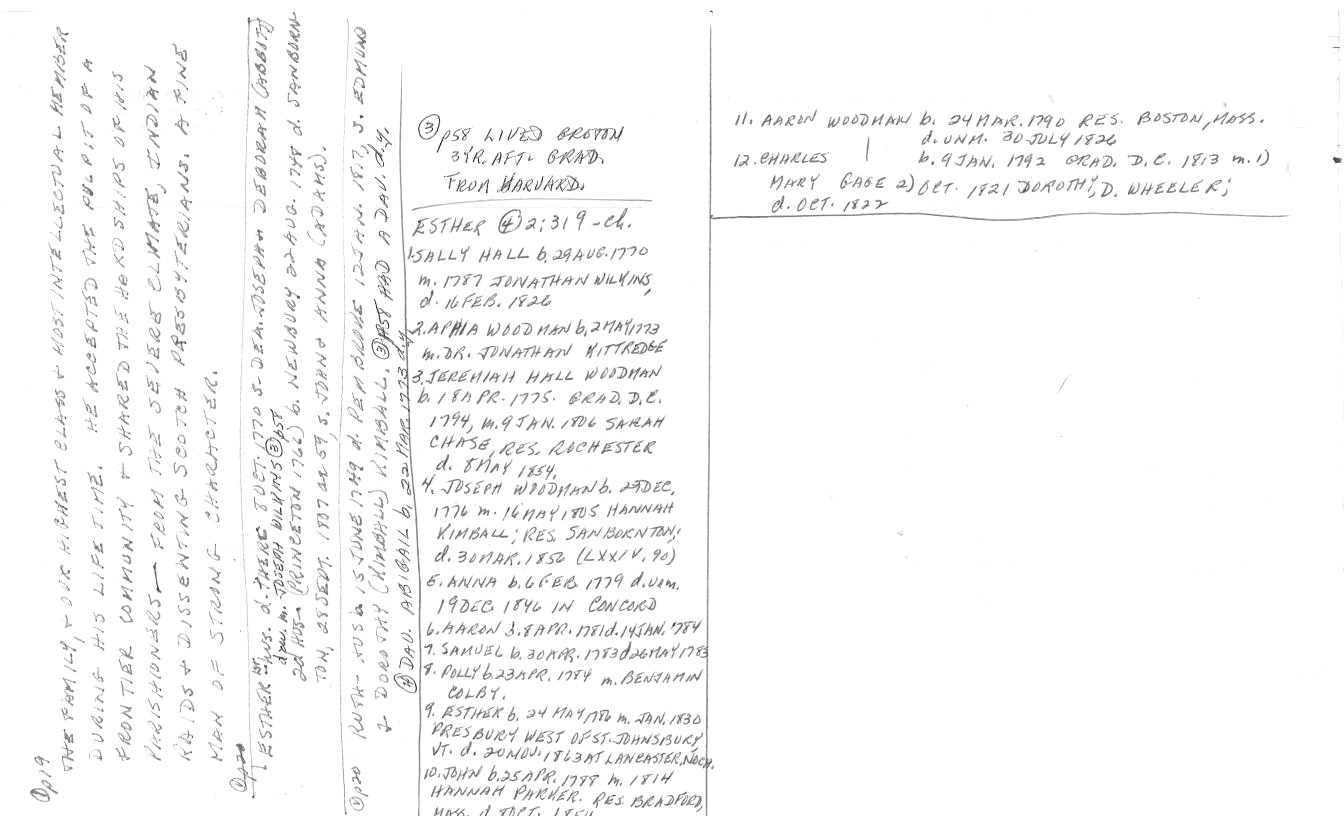 ① p19
THE FAMILY, + OUR HIGHEST CLASS + MOST INTELLECTUAL MEMBER
DURING HIS LIFE TIME. HE ACCEPTED THE PULPIT OF A
FRONTIER COMMUNITY + SHARED THE HARDSHIPS OF HIS
PARISHIONERS — FROM THE SEVERE CLIMATE, INDIAN
RAIDS + DISSENTING SCOTCH PRESBYTERIANS. A FINE
MAN OF STRONG CHARACTER.
① p20
ESTHER 1ST HUS. d. THERE 8 OCT. 1770 S. DEA. JOSEPH + DEBORAH (ABBITT)
m. JOSEPH WILKINS ③ p58
2d HUS - (PRINCETON 1766) b. NEWBURY 22 AUG. 1748 d. SANBORN-
TON, 28 SEPT. 1807 as 59, S. JOHN + ANNA (ADAMS).
① p20 RUTH - HUS b. 15 JUNE 1749 d. PEMBROKE 12 JAN. 1817, S. EDMUND
+ DOROTHY (KIMBALL) KIMBALL. ③ p58 HAD A DAU. d.y.
④ DAU. ABIGAIL b. 22 MAR. 1773 d.y.
③ p58 LIVED GROTON
3 YR. AFT. GRAD.
FROM HARVARD.
ESTHER ④ 2:319 - ch.
1. SALLY HALL b. 29 AUG. 1770
m. 1787 JONATHAN WILKINS,
d. 16 FEB. 1826
2. APHIA WOODMAN b. 2 MAY 1773
m. DR. JONATHAN KITTREDGE
3. JEREMIAH HALL WOODMAN
b. 18 APR. 1775. GRAD. D.C.
1794, m. 9 JAN. 1806 SARAH
CHASE, RES. ROCHESTER
d. 8 MAY 1854.
4. JOSEPH WOODMAN b. 29 DEC,
1776 m. 16 MAY 1805 HANNAH
KIMBALL; RES. SANBORNTON;
d. 30 MAR. 1856 (LXXIV. 90)
5. ANNA b. 6 FEB. 1779 d. unm.
19 DEC. 1846 IN CONCORD
6. AARON b. 8 APR. 1781 d. 14 JAN. 1784
7. SAMUEL b. 30 APR. 1783 d 26 MAY 1783
8. POLLY b. 23 APR. 1784 m. BENJAMIN
COLBY.
9. ESTHER b. 24 MAY 1786 m. JAN. 1830
PRESBURY WEST OF ST. JOHNSBURY,
VT. d. 20 NOV. 1863 AT LANCASTER, NO ch.
10. JOHN b. 25 APR. 1788 m. 1814
HANNAH PARKER. RES. BRADFORD,
MASS. d. OCT.
11. AARON WOODMAN b. 24 MAR. 1790 RES. BOSTON, MASS.
d. UNM. 30 JULY 1826
12. CHARLES | b. 9 JAN. 1792 GRAD. D.C. 1813 m. 1)
MARY GAGE 2) OCT. 1821 DOROTHY, D. WHEELER;
d. OCT. 1822